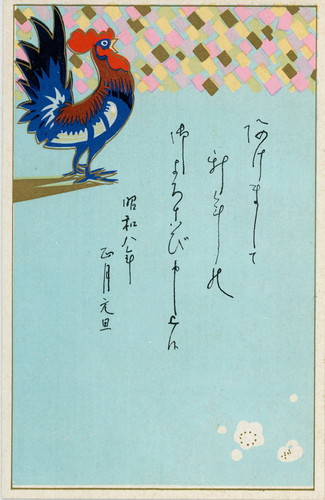 あけまして
新年の
御よろこび申上候
昭和八年
正月元旦